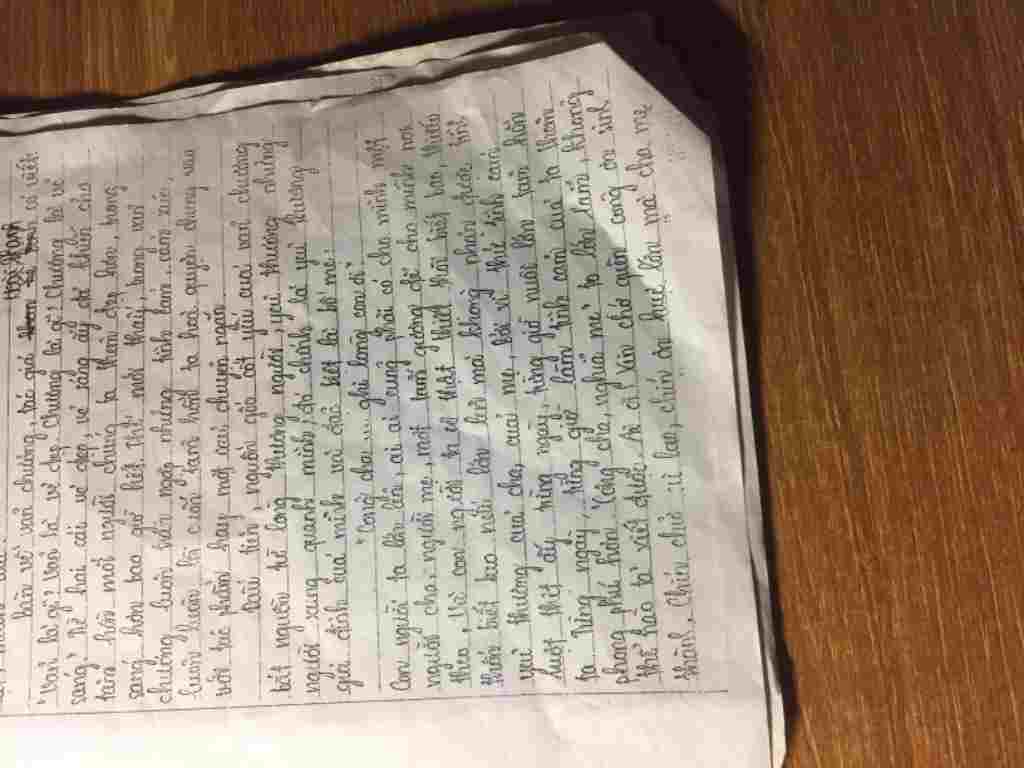 Bàn về văn chương, tác giả Hoài Thanh có viết
"Văn là gì? Văn là vẻ đẹp. Chương là gì? Chương là vẻ
sáng". Từ hai cái vẻ đẹp, vẻ sáng ấy đã khiến cho
tâm hồn mỗi người chúng ta thêm đẹp hơn, trong
sáng hơn bao giờ hết. Thật, mới thấy, trong văn
chương luôn hàm ngọc những tình cảm, cảm xúc,
luôn khiến lối cuốn tâm hồn ta hoà quyện chung vào
với tác phẩm hay một câu chuyện ngắn.
Đầu tiên, nguồn gốc cốt yếu của văn chương
bắt nguồn từ lòng thương người, yêu thương những
người xung quanh mình, đó chính là yêu thương
gia đình của mình và đặc biệt là bố mẹ:
"Công cha ... ghi lòng con ơi"
Con người ta lớn lên, ai ai cũng phải có cho mình một
người cha, người mẹ, một tấm gương để cho mình noi
theo. Vì con người ta có thật thiết thời biết bao, thiếu
thốn biết bao nếu lớn lên mà không nhận được tình
yêu thương của cha, của mẹ, bởi vì thứ tình cảm
ruột thịt ấy từng ngày, từng giờ nuôi lớn tâm hồn
ta. Từng ngày, từng giờ làm tình cảm của ta thêm
phong phú hơn. Công cha, nghĩa mẹ to lớn lắm, không
thể nào tả xiết được. Ai ai vẫn nhớ quên công ơn sinh
thành. Chín chữ cù lao, chín ơn huệ lớn mà cha mẹ